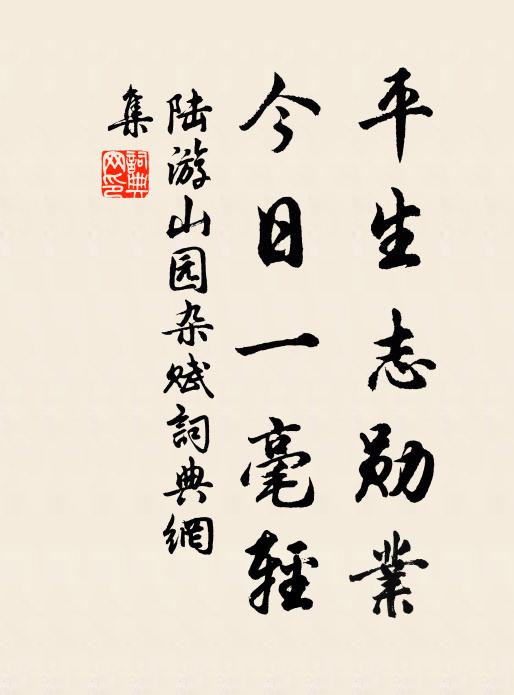 平生志勋業
今日一毫輕
陆游山园杂赋詞典網
集
詞典网印